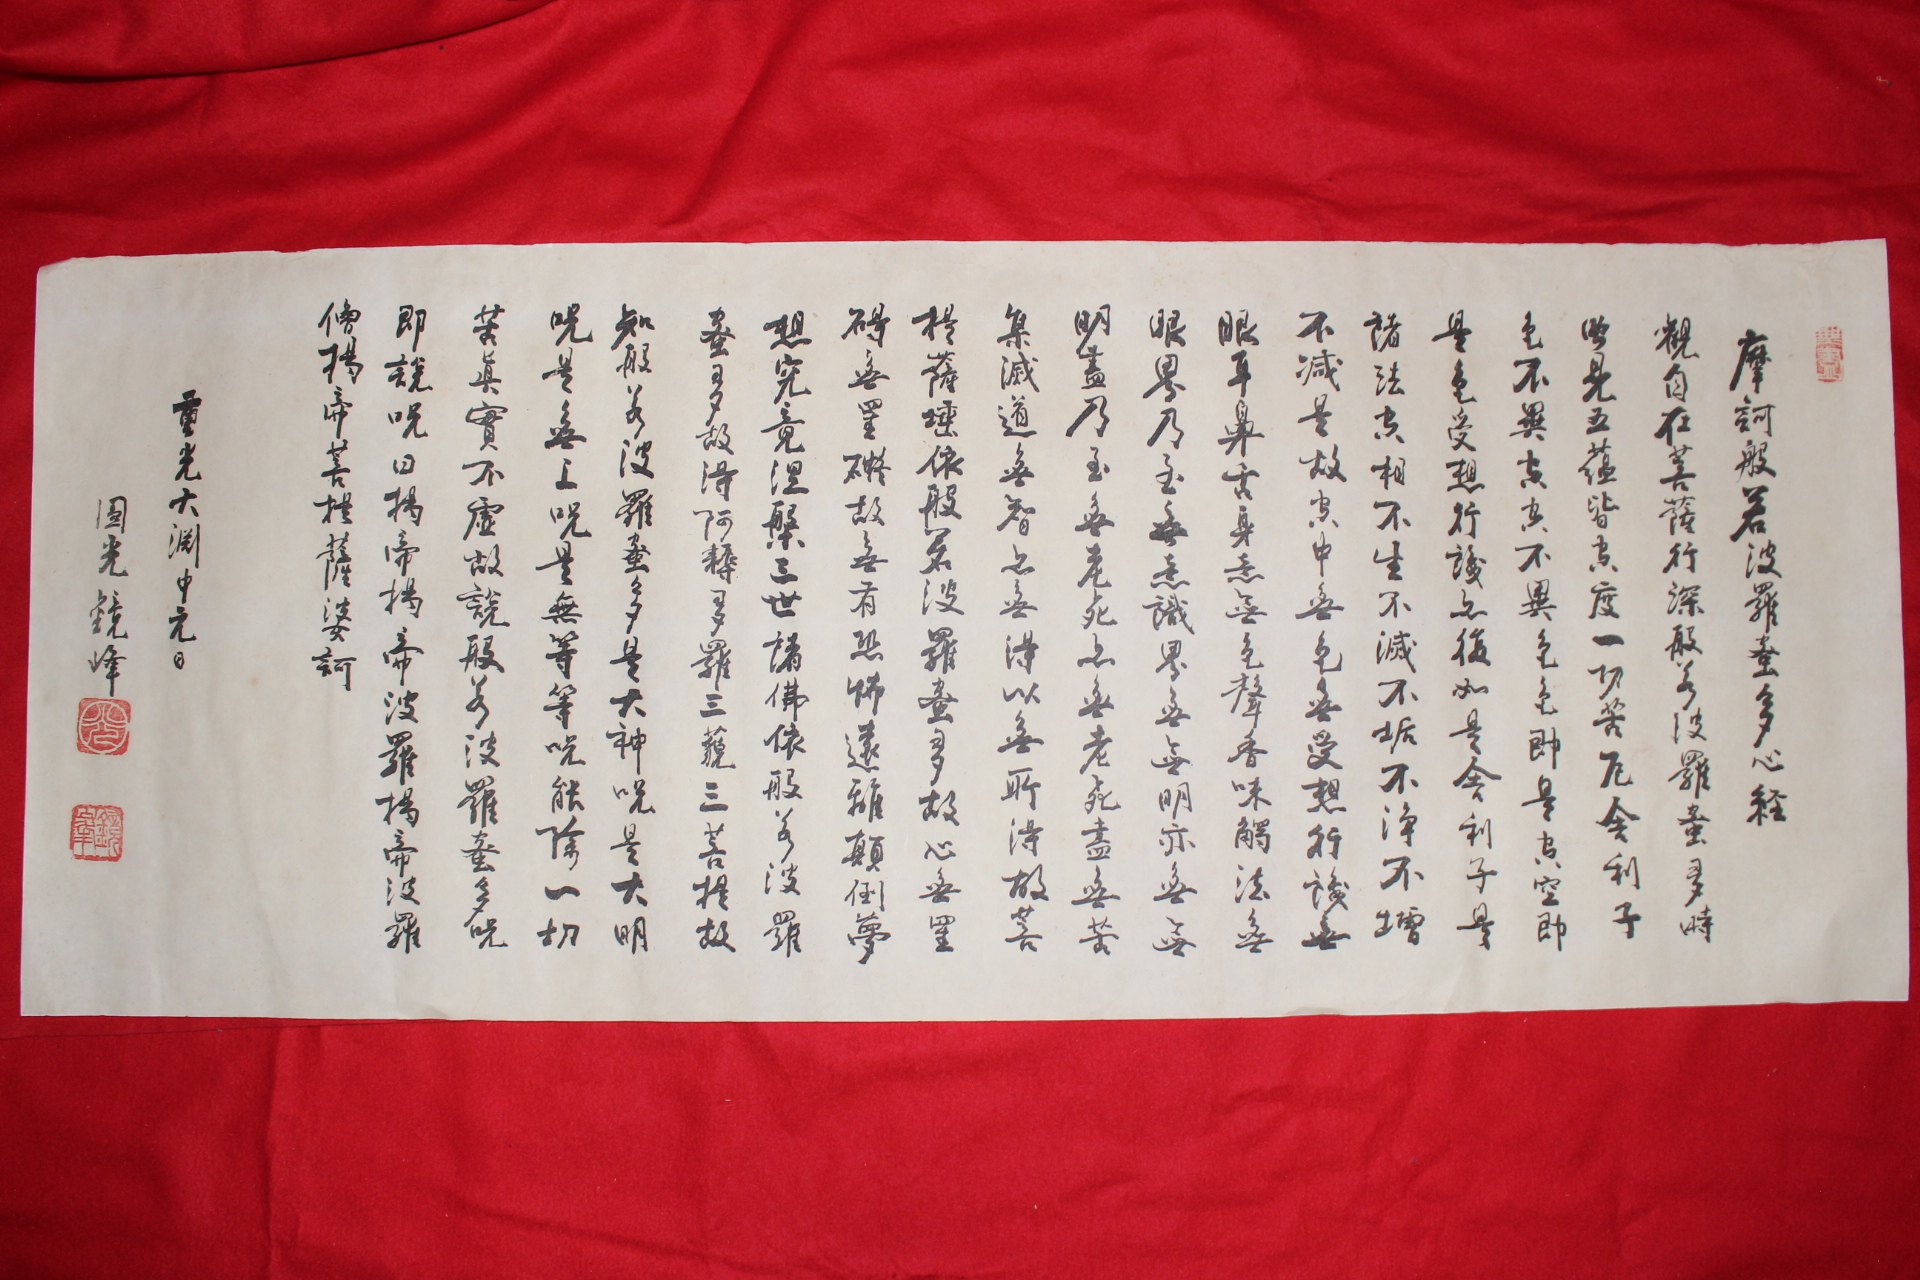 摩訶般若波羅蜜多心経
觀自在菩薩行深般若波羅蜜多時
照見五蘊皆空度一切苦厄舍利子
色不異空空不異色色即是空空即
是色受想行識亦復如是舍利子是
諸法空相不生不滅不垢不淨不增
不減是故空中無色無受想行識無
眼耳鼻舌身意無色聲香味觸法無
眼界乃至無意識界無無明亦無無
明盡乃至無老死亦無老死盡無苦
集滅道無智亦無得以無所得故菩
提薩埵依般若波羅蜜多故心無罣
碍無罣礙故無有恐怖遠離顛倒夢
想究竟涅槃三世諸佛依般若波羅
蜜多故得阿耨多羅三藐三菩提故
知般若波羅蜜多是大神呪是大明
呪是無上呪是無等等呪能除一切
苦眞實不虛故說般若波羅蜜多呪
即說呪曰揭帝揭帝波羅揭帝波羅
僧揭帝菩提薩婆訶
重光大淵中元日
圓光鏡峰